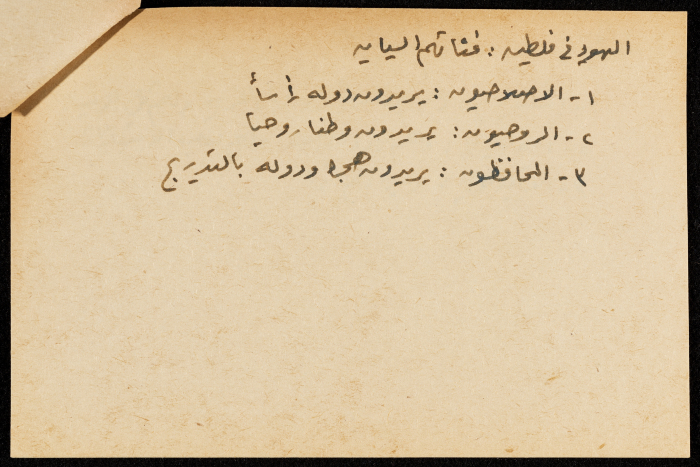 اليهود في فلسطين : فئاتهم السياسية
١- الاصلاحيون : يريدون دولة رأسأ
٢- الروحيون : يريدون وطنا روحيا
٣- المحافظون : يريدون ودولة بالتدريج